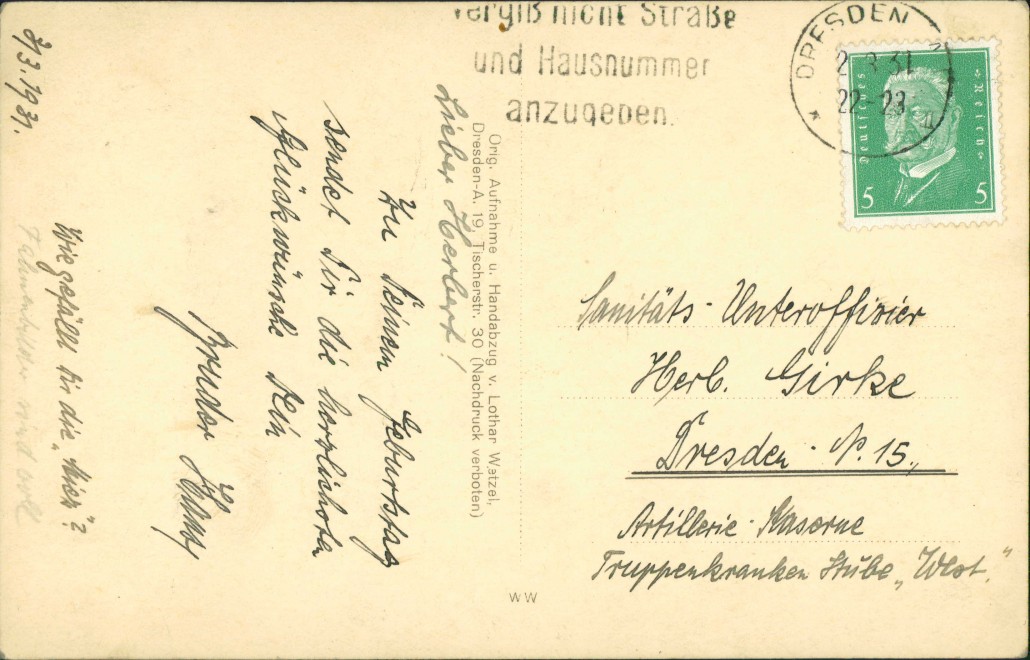 vergiß nicht Straße
und Hausnummer
anzugeben.
DRESDEN
22-23
Deutsches Reich
5 5
2/3.1931.
Lieber Herbert!
Zu Deinem Geburtstag
sendet Dir die herzlichsten
Glückwünsche Dein
Bruder
Wie gefällt Dir die
Orig. Aufnahme u. Handabzug v. Lothar Watzel,
Dresden-A. 19, Tischerstr. 30 (Nachdruck verboten)
Sanitäts-Unteroffizier
Herb. Girke
Dresden-N. 15.
Artillerie-Kaserne
Truppenkranken Stube „West."
WW